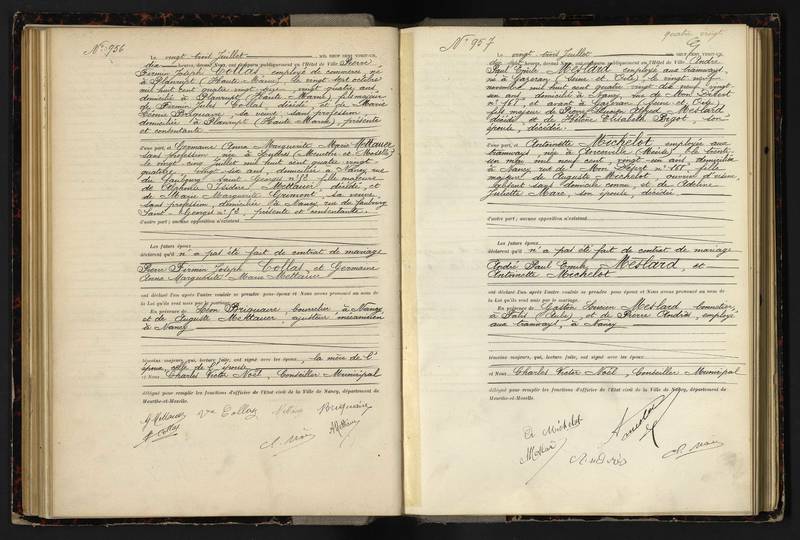 N° 956
Le vingt trois Juillet MIL NEUF CENT VINGT-UN,
dix heures, devant Nous, ont comparu publiquement en l'Hôtel de Ville Pierre
Firmin Joseph Collas, employé de commerce, né
à (Haute-Marne), le vingt sept octobre
mil huit cent quatre vingt seize, vingt quatre ans,
domicilié à (Haute Marne) fils majeur
de Firmin Jules Collas décédé, et de Marie
Briquaire, sa veuve, sans profession,
domiciliée à (Haute Marne), présente
et consentante
d'une part, et Germaine Anna Marguerite Marie Mettauer,
sans profession, née à (Meurthe et Moselle),
le vingt cinq Juillet mil huit cent quatre vingt
quatorze, vingt six ans, domiciliée à Nancy, rue
du Faubourg Saint Georges n° 13, fille majeure
de Isidore Mettauer, décédé, et
de Marie Marguerite sa veuve,
sans profession, domiciliée à Nancy, rue du Faubourg
Saint Georges n° 13, présente et consentante.
d'autre part; aucune opposition n'existant
Les futurs époux
déclarent qu'il n'a pas été fait de contrat de mariage
Pierre Firmin Joseph Collas, et Germaine
Anna Marguerite Marie Mettauer
ont déclaré l'un après l'autre vouloir se prendre pour époux et Nous avons prononcé au nom de
la Loi qu'ils sont unis par le mariage.
En présence de Léon Briquaire, bourrelier, à Nancy
et de Auguste Mettauer, ajusteur mécanicien
à Nancy
témoins majeurs, qui, lecture faite, ont signé avec les époux, la mère de l'
époux, celle de l'épouse
et Nous Charles Victor Noël, Conseiller Municipal
délégué pour remplir les fonctions d'officier de l'Etat civil de la Ville de Nancy, département de
Meurthe-et-Moselle.
G Mettauer Vve Collas Briquaire
P Collas
N° 957
quatre vingt
Le vingt trois Juillet MIL NEUF CENT VINGT-UN,
dix heures, devant Nous, ont comparu publiquement en l'Hôtel de Ville André
Paul Emile Meslard, employé aux tramways,
né à Gazeran (Seine et Oise), le vingt neuf
novembre mil huit cent quatre vingt dix neuf, vingt
un ans, domicilié à Nancy, rue de Mon Désert
n° 161, et avant à Gazeran (Seine et Oise),
fils majeur de Alfred Meslard
décédé et de Elisabeth son
épouse, décédée.
d'une part, et Antoinette Michelot, employée aux
tramways, née à (Meuse), le trente
un mai mil neuf cent, vingt un ans, domiciliée
à Nancy, rue de Mon Désert n° 161, fille
majeure de Auguste Michelot, ouvrier d'usine,
absent sans domicile connu, et de Adeline
Juliette Marc, son épouse, décédée.
d'autre part; aucune opposition n'existant
Les futurs époux
déclarent qu'il n'a pas été fait de contrat de mariage
André Paul Emile Meslard, et
Antoinette Michelot
ont déclaré l'un après l'autre vouloir se prendre pour époux et Nous avons prononcé au nom de
la Loi qu'ils sont unis par le mariage.
En présence de Gaston Meslard,
à Paris et de Pierre Andrès, employé
aux tramways, à Nancy
témoins majeurs, qui, lecture faite, ont signé avec les époux
et Nous Charles Victor Noël, Conseiller Municipal
délégué pour remplir les fonctions d'officier de l'Etat civil de la Ville de Nancy, département de
Meurthe-et-Moselle.
Michelot
Meslard Andrès